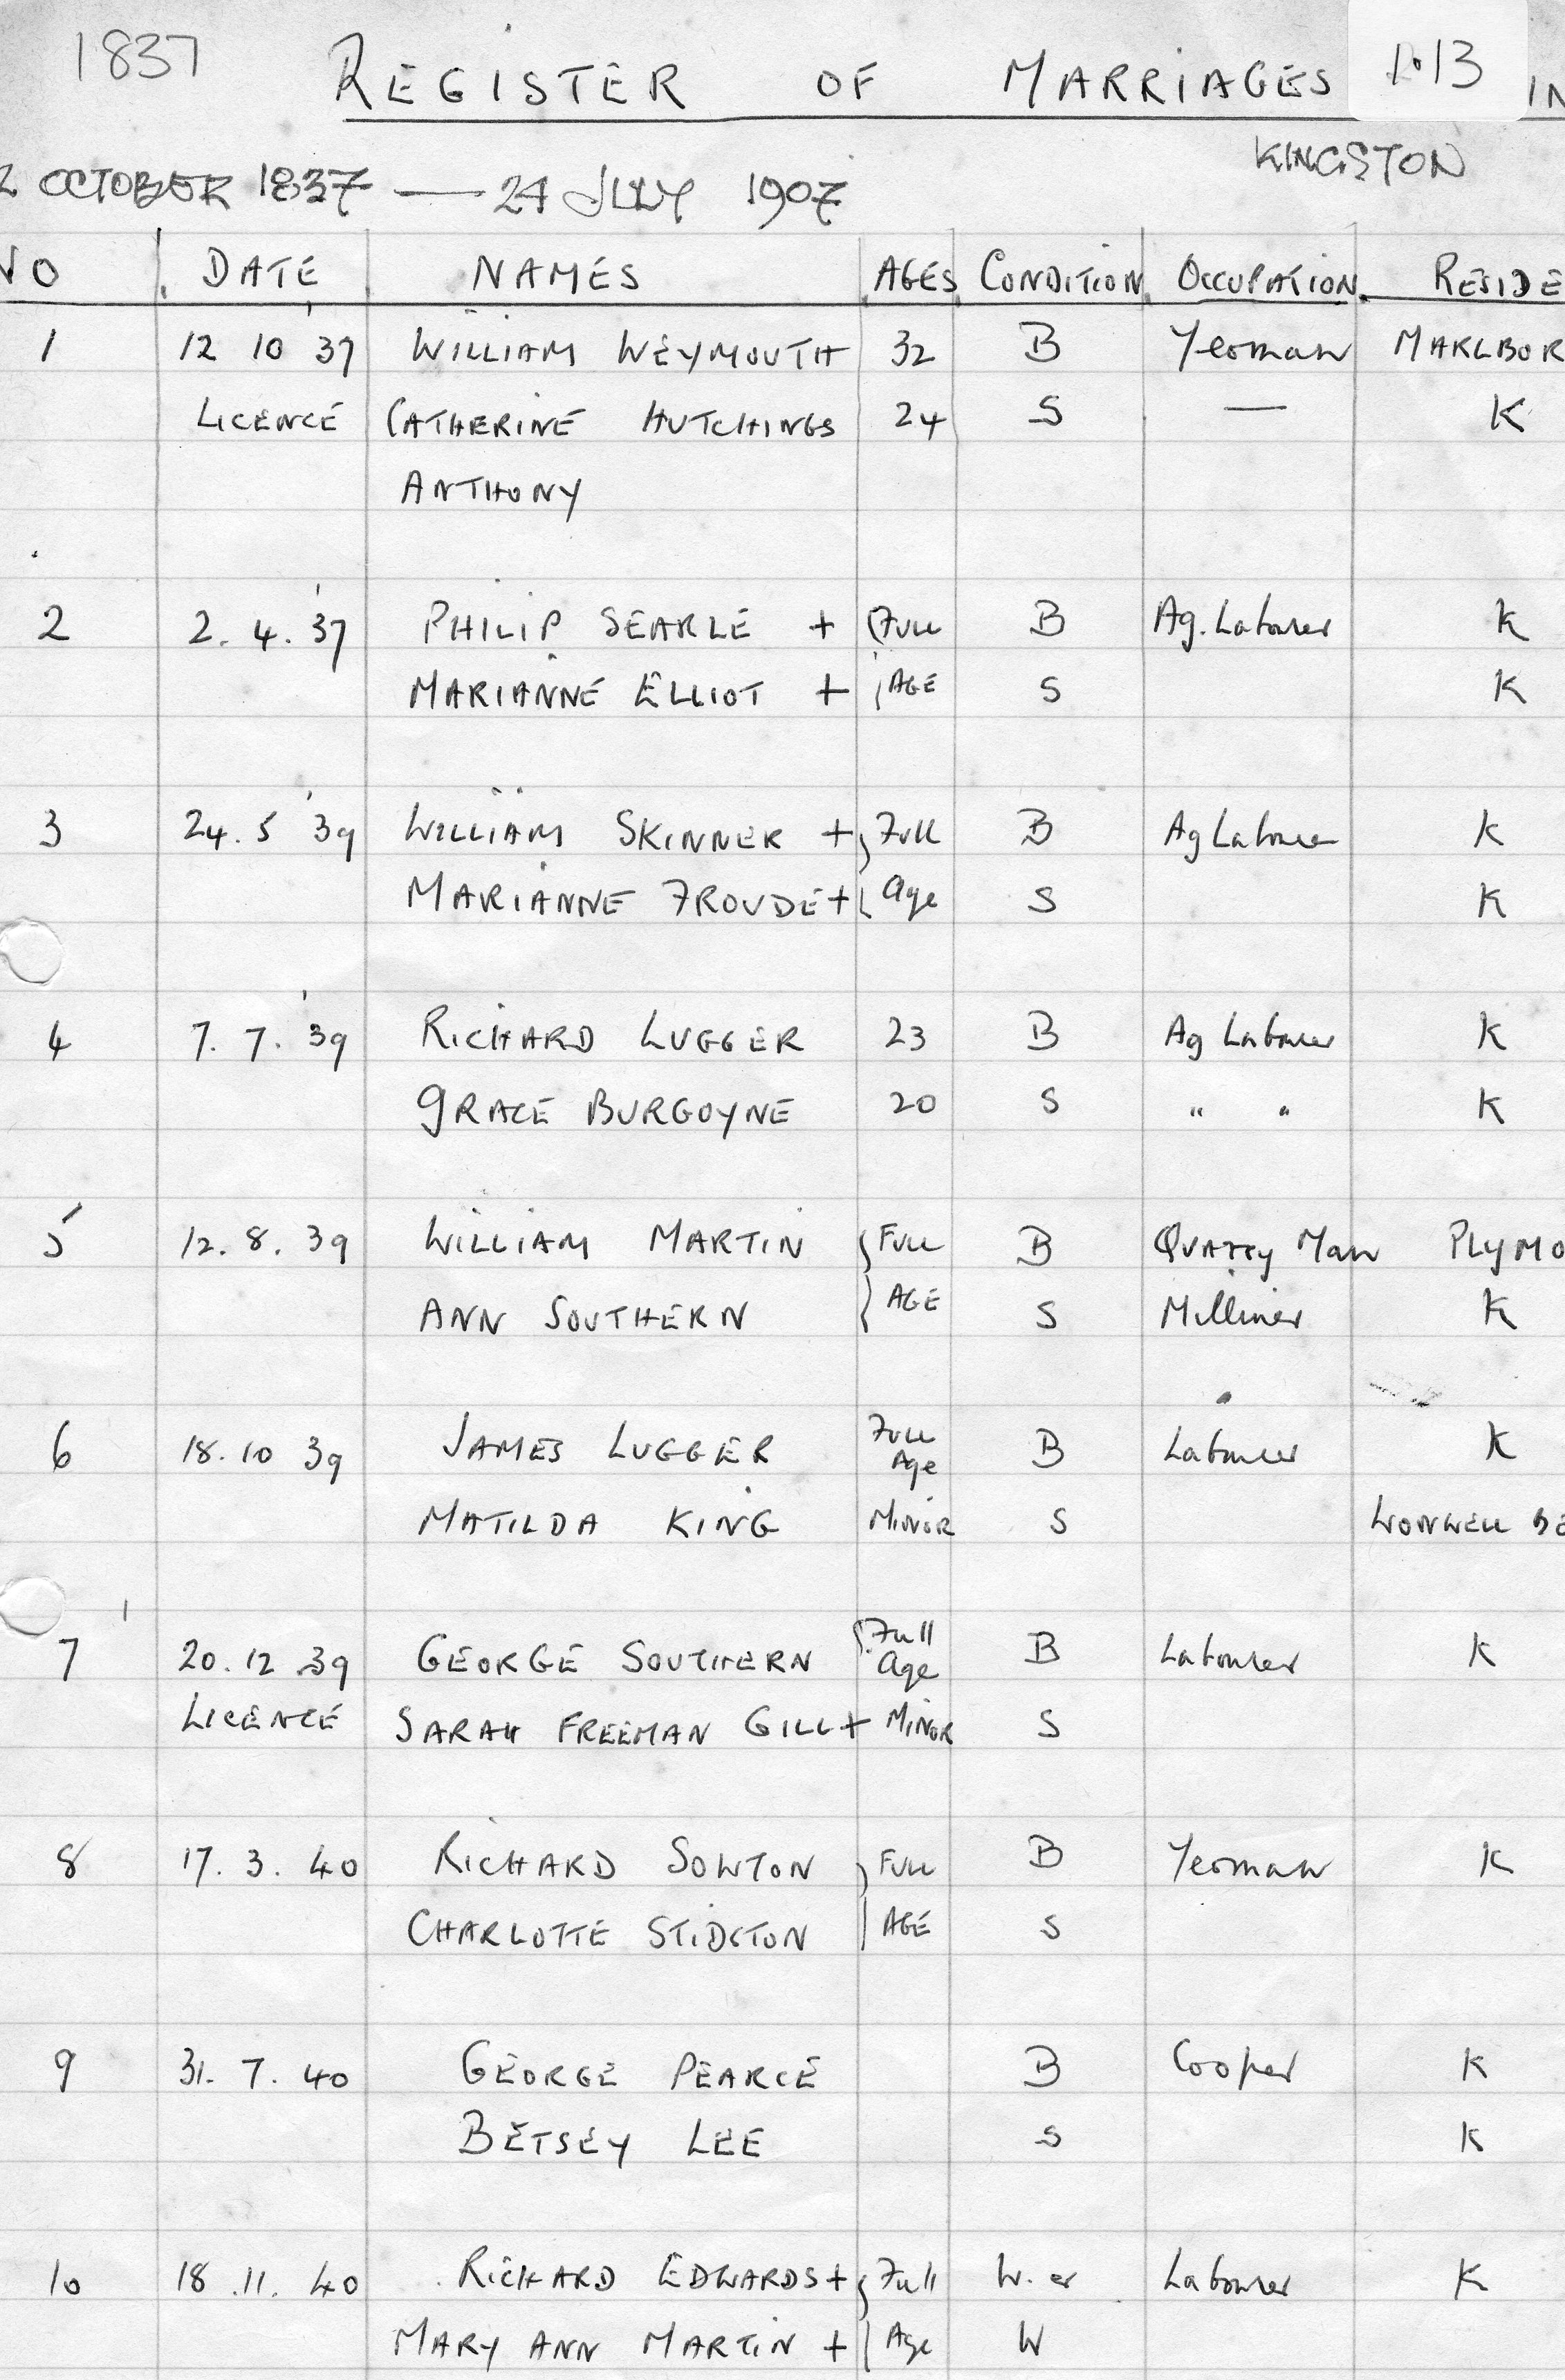 1837 REGISTER OF MARRIAGES 1.13 IN
KINGSTON
2 OCTOBER 1837 — 24 JULY 1907
NO DATE NAMES AGES CONDITION OCCUPATION RESIDE
1 12 10 '37 WILLIAM WEYMOUTH 32 B Yeoman MARLBOR
LICENCE CATHERINE HUTCHINGS 24 S — K
ANTHONY
2 2. 4. '37 PHILIP SEARLE + FULL B Ag. Labourer K
MARIANNE ELLIOT + AGE S K
3 24. 5 '39 WILLIAM SKINNER + Full B Ag Labourer K
MARIANNE FROUDE + Age S K
4 7. 7. '39 RICHARD LUGGER 23 B Ag Labourer K
GRACE BURGOYNE 20 S " " K
5 12. 8. 39 WILLIAM MARTIN FULL B Quarry Man PLYMO
ANN SOUTHERN AGE S Milliner K
6 18. 10 39 JAMES LUGGER FULL Age B Labourer K
MATILDA KING MINOR S WONWELL BE
7 20. 12 39 GEORGE SOUTHERN Full Age B Labourer K
LICENCE SARAH FREEMAN GILL + MINOR S
8 17. 3. 40 RICHARD SOWTON FULL B Yeoman K
CHARLOTTE STIDSTON AGE S
9 31. 7. 40 GEORGE PEARCE B Cooper K
BETSEY LEE S K
10 18. 11. 40 RICHARD EDWARDS + Full W. er Labourer K
MARY ANN MARTIN + Age W